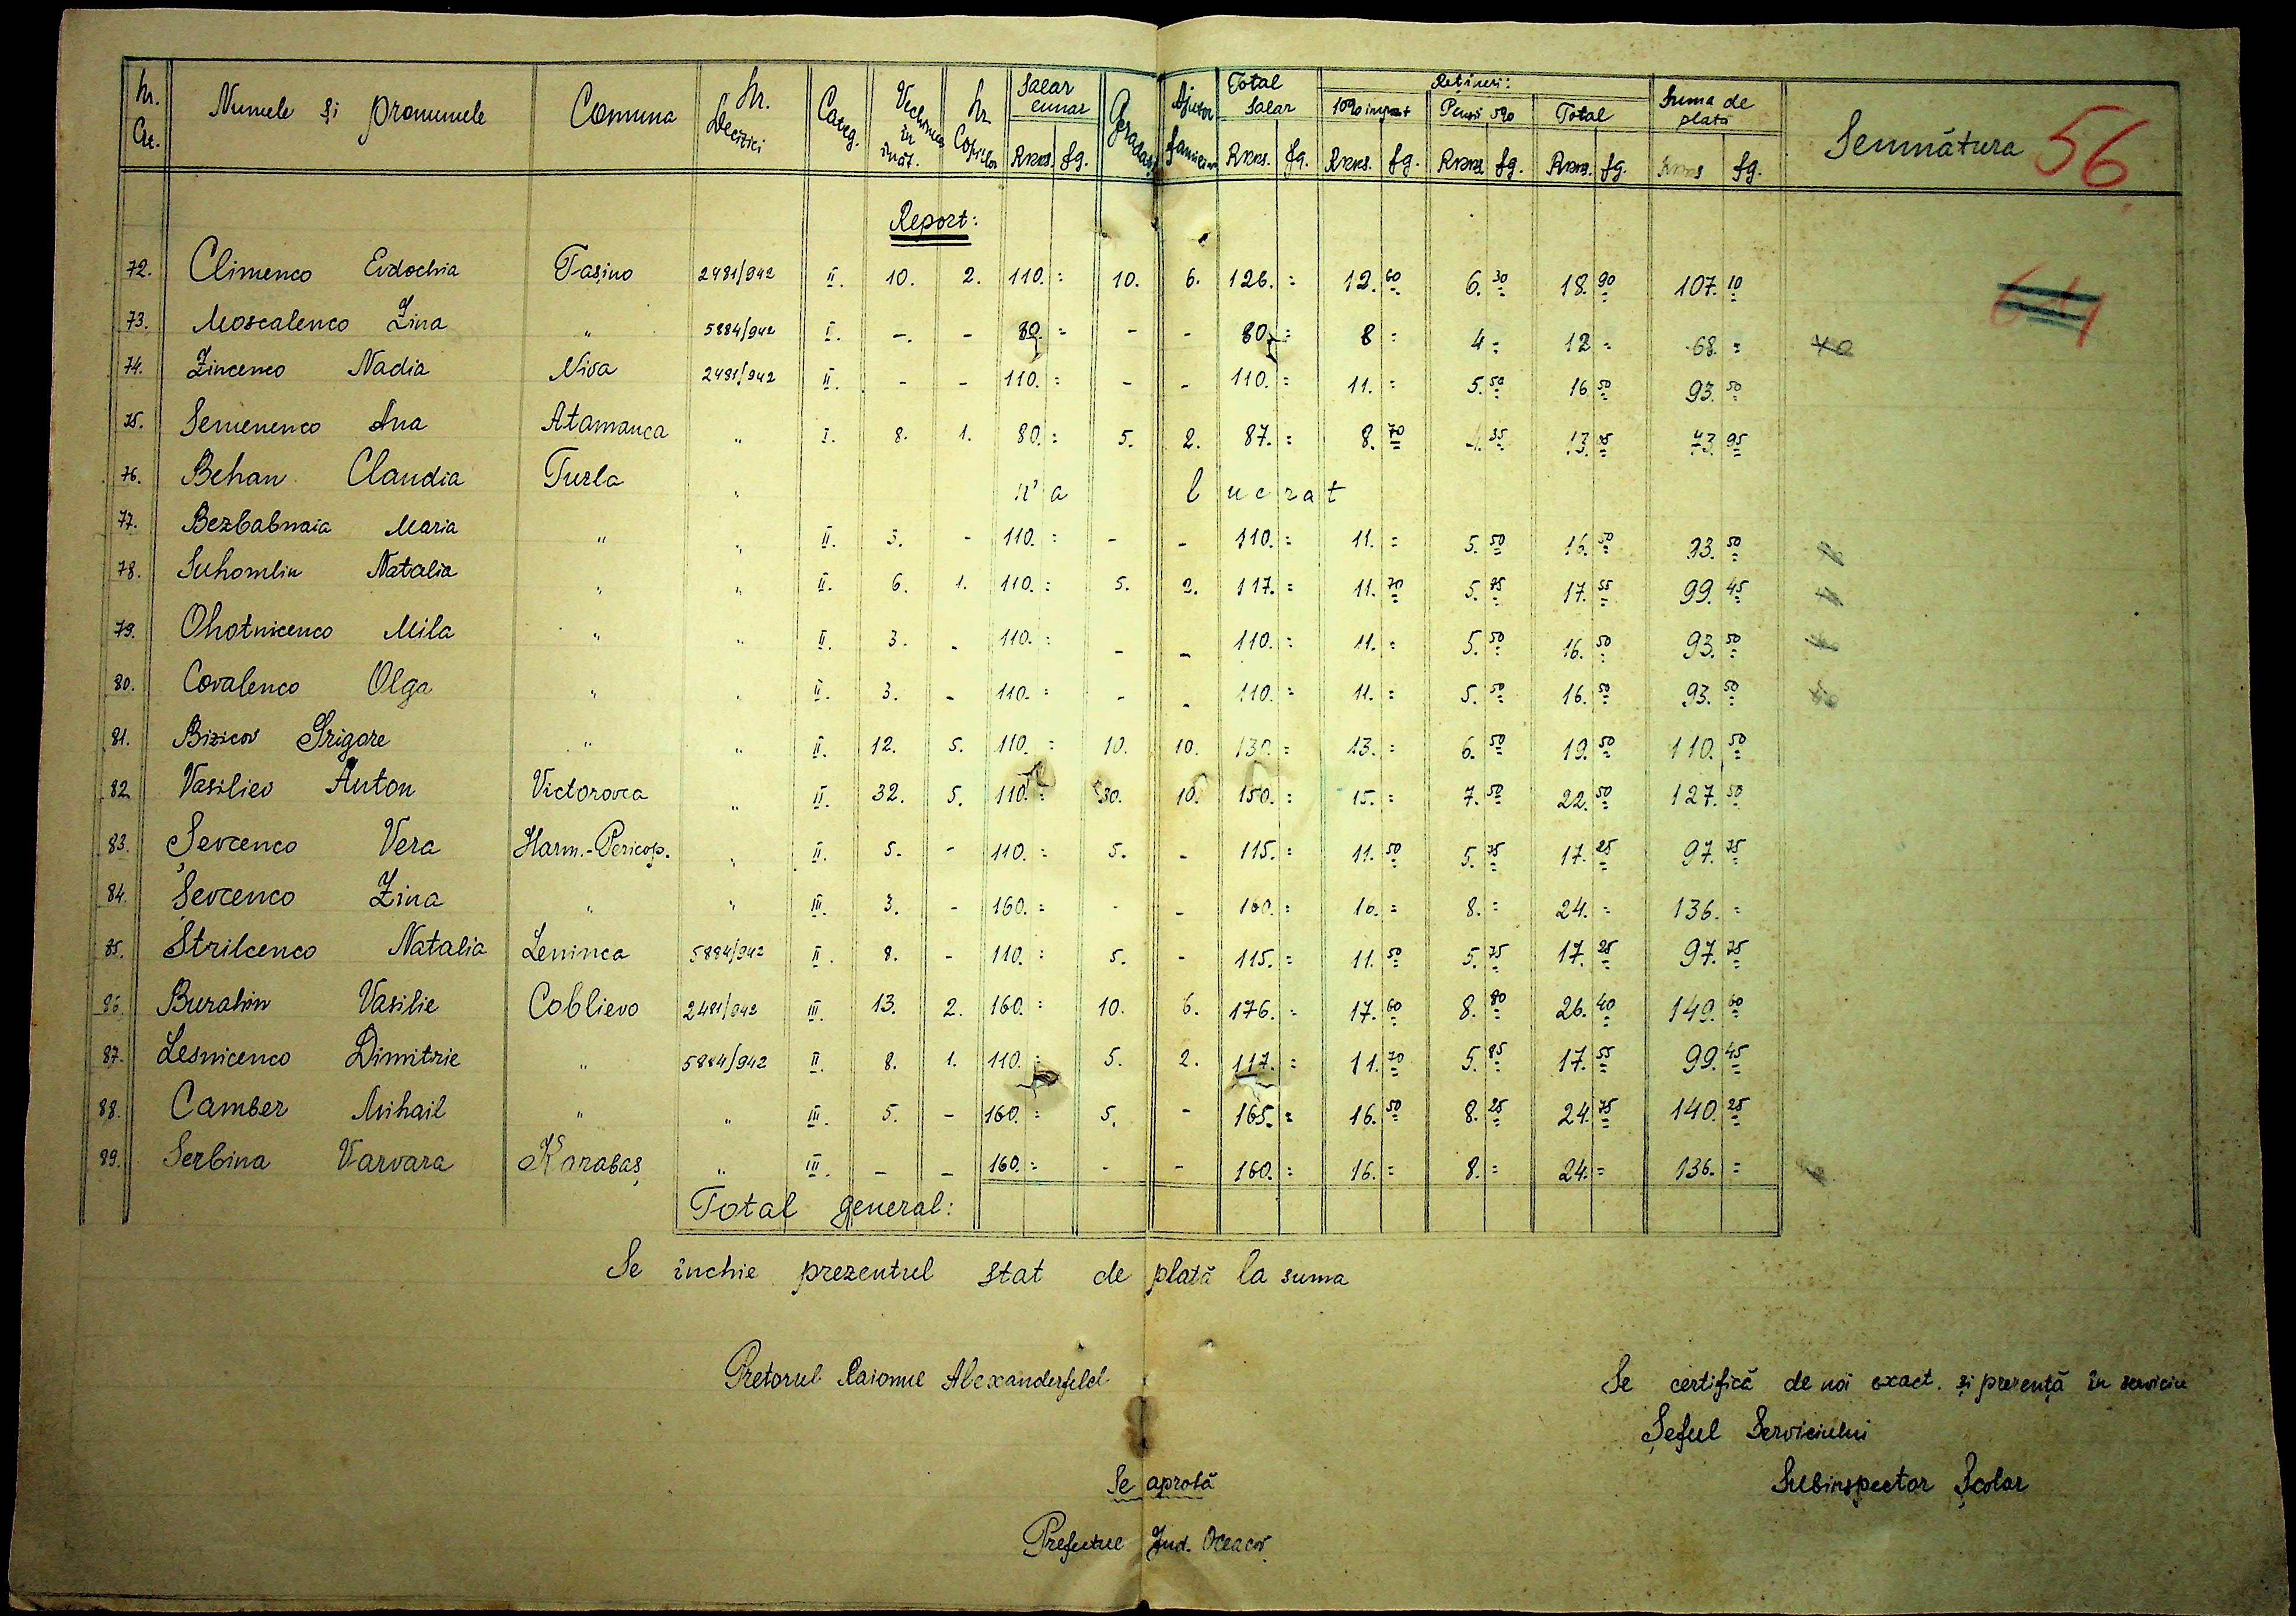 Nr. Crt. Numele și pronumele Comuna Nr. Deciziei Categ. Vechimea în învăț. Nr. Copiilor Salar lunar Rkks. fg. Gradație Ajutor familiar Total Salar Rkks. fg. Rețineri: 10% impozit Rkks. fg. Pensii 5% Rkks. fg. Total Rkks. fg. Suma de plată Rkks fg. Semnătura 56
Report:
72. Climenco Evdochia Tașino 2481/942 II. 10. 2. 110. = 10. 6. 126. = 12. 60 6. 30 18. 90 107. 10
73. Moscalenco Zina " 5884/942 I. -. - 80. = - - 80. = 8 = 4 = 12 = 68. =
74. Zincenco Nadia Niva 2481/942 II. - - 110. = - - 110. = 11. = 5. 50 16 50 93. 50
75. Semenenco Ana Atamanca " I. 8. 1. 80. = 5. 2. 87. = 8. 70 4. 35 13. 05 73. 95
76. Behan Claudia Turla " n'a lucrat
77. Bezbabnaia Maria " " II. 3. - 110. = - - 110. = 11. = 5. 50 16. 50 93. 50
78. Suhomlin Natalia " " II. 6. 1. 110. = 5. 2. 117. = 11. 70 5. 85 17. 55 99. 45
79. Ohotnicenco Mila " " II. 3. - 110. = - - 110. = 11. = 5. 50 16. 50 93. 50
80. Covalenco Olga " " II. 3. - 110. = - - 110. = 11. = 5. 50 16. 50 93. 50
81. Bizicov Grigore " " II. 12. 5. 110. = 10. 10. 130. = 13. = 6. 50 19. 50 110. 50
82. Vasiliev Anton Victorovca " II. 32. 5. 110. = 30. 10. 150. = 15. = 7. 50 22. 50 127. 50
83. Șevcenco Vera Harm.-Pericop. " II. 5. - 110. = 5. - 115. = 11. 50 5. 75 17. 25 97. 75
84. Șevcenco Zina " " III. 3. - 160. = - - 160. = 16. = 8. = 24. = 136. =
85. Strilcenco Natalia Leninca 5884/942 II. 8. - 110. = 5. - 115. = 11. 50 5. 75 17. 25 97. 75
86. Burahin Vasilie Coblievo 2481/942 III. 13. 2. 160. = 10. 6. 176. = 17. 60 8. 80 26. 40 149. 60
87. Lesnicenco Dimitrie " 5884/942 II. 8. 1. 110. = 5. 2. 117. = 11. 70 5. 85 17. 55 99. 45
88. Camber Mihail " " III. 5. - 160. = 5. - 165. = 16. 50 8. 25 24. 75 140. 25
89. Serbina Varvara Karabaș " III. - - 160. = - - 160. = 16. = 8. = 24. = 136. =
Total general:
Se închie prezentul stat de plată la suma
Pretorul Raionul Alexanderfeld
Se certifică de noi exact. și prezență în serviciu
Șeful Serviciului
Subinspector Școlar
Se aprobă
Prefectul Jud. Oceacov